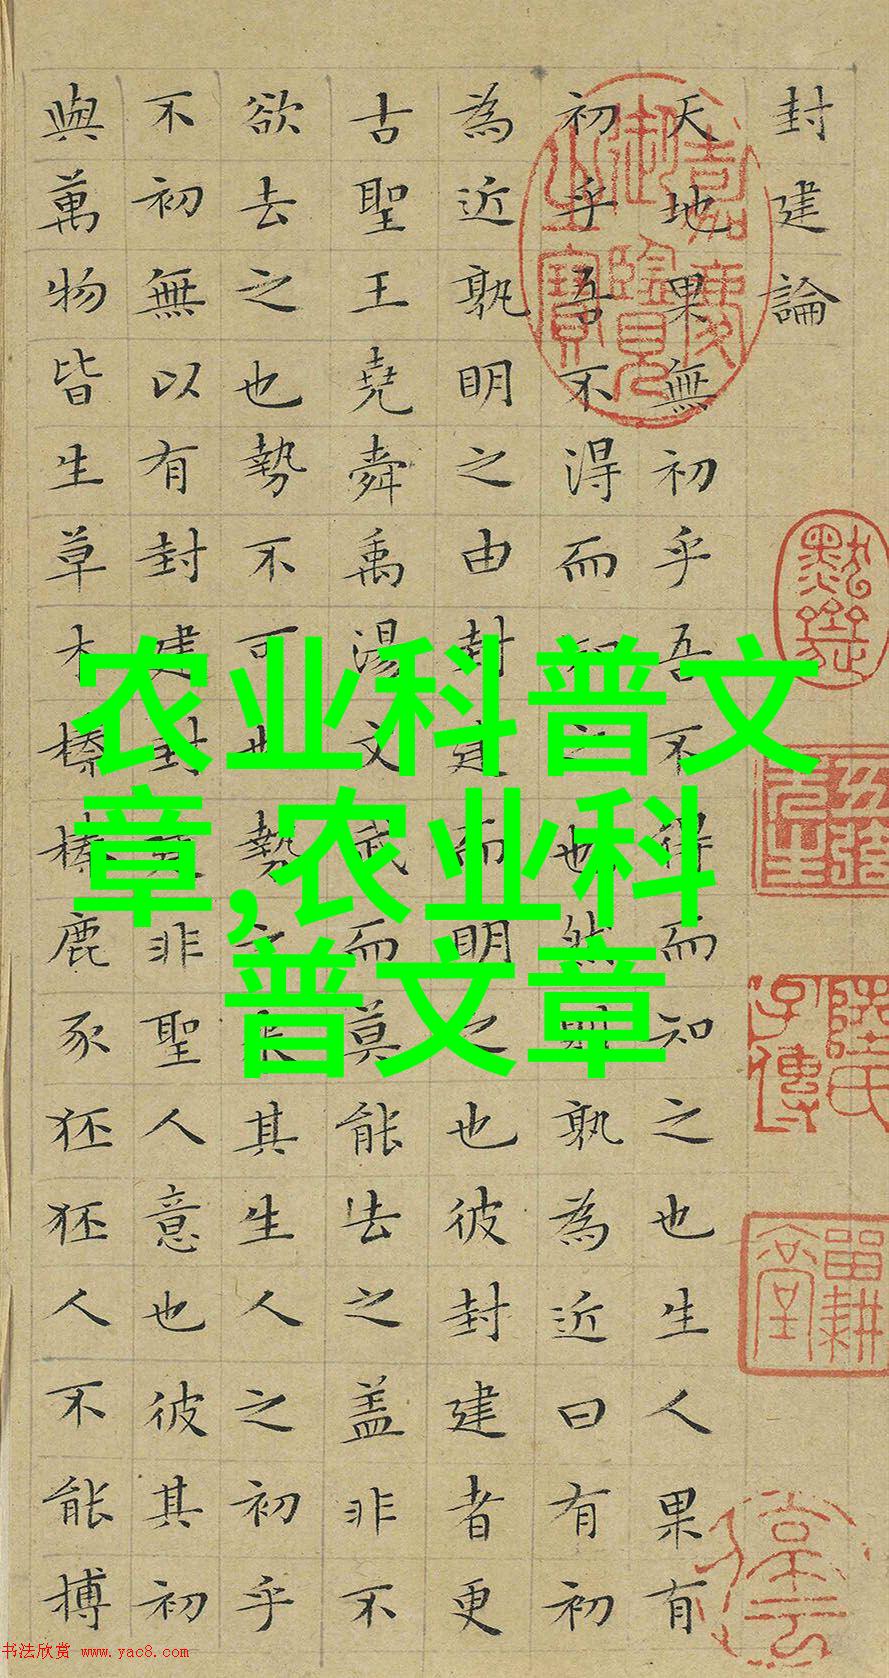 封建論
天地果無初乎吾不得而知之也生人果有
初乎吾不得而知之也然則孰為近曰有初
為近孰明之由封建而明之也彼封建者更
古聖王堯舜禹湯文武而莫能去之盖非不
欲去之也勢不可也勢之來其生人之初乎
不初無以有封建封建非聖人意也彼其初
與萬物皆生草木榛榛鹿豕狉狉人不能搏
嘉慶御覽之寶
农业科普文
章,农业科
普文章
书法欣赏 www.yac8.com